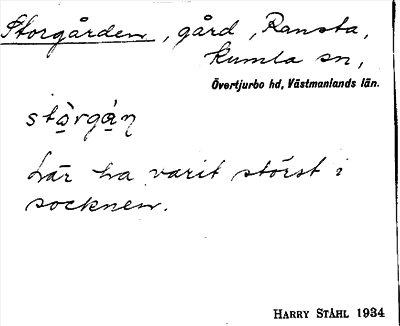 Storgården, gård, Ransta,
Kumla sn,
Övertjurbo hd, Västmanlands län.
stò̱rgá̱ŋ
Lär ha varit störst i
socknen.
HARRY STÅHL 1934